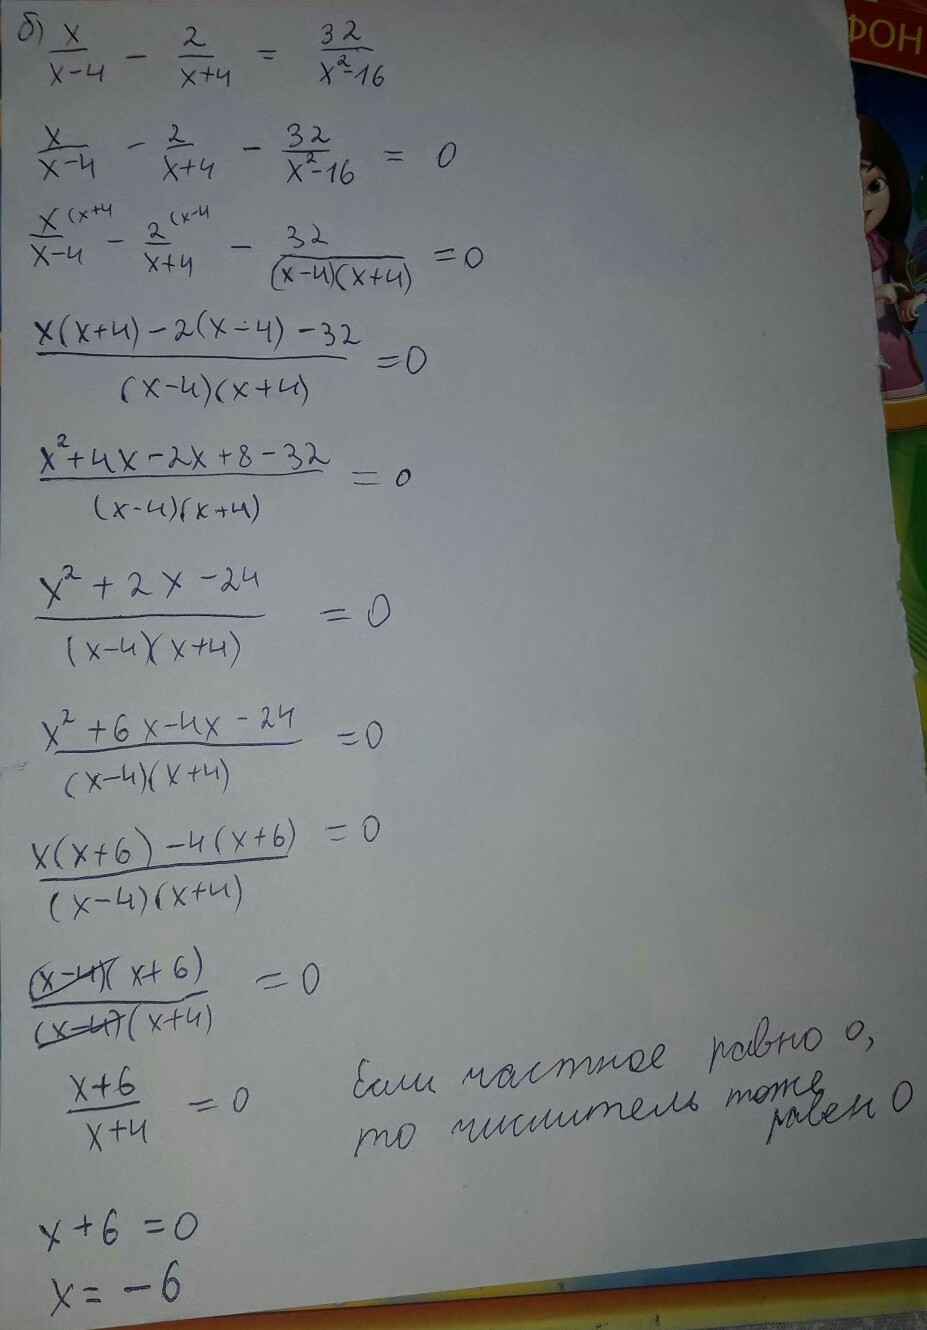 ФОН
б) x/(x-4) - 2/(x+4) = 32/(x²-16)
x/(x-4) - 2/(x+4) - 32/(x²-16) = 0
x^(x+4/(x-4) - 2^(x-4/(x+4) - 32/((x-4)(x+4)) = 0
(x(x+4) - 2(x-4) - 32)/((x-4)(x+4)) = 0
(x²+4x-2x+8-32)/((x-4)(x+4)) = 0
(x²+2x-24)/((x-4)(x+4)) = 0
(x²+6x-4x-24)/((x-4)(x+4)) = 0
(x(x+6)-4(x+6))/((x-4)(x+4)) = 0
((x-4)(x+6))/((x-4)(x+4)) = 0
(x+6)/(x+4) = 0
Если частное равно 0,
то числитель тоже
равен 0
x+6 = 0
x = -6